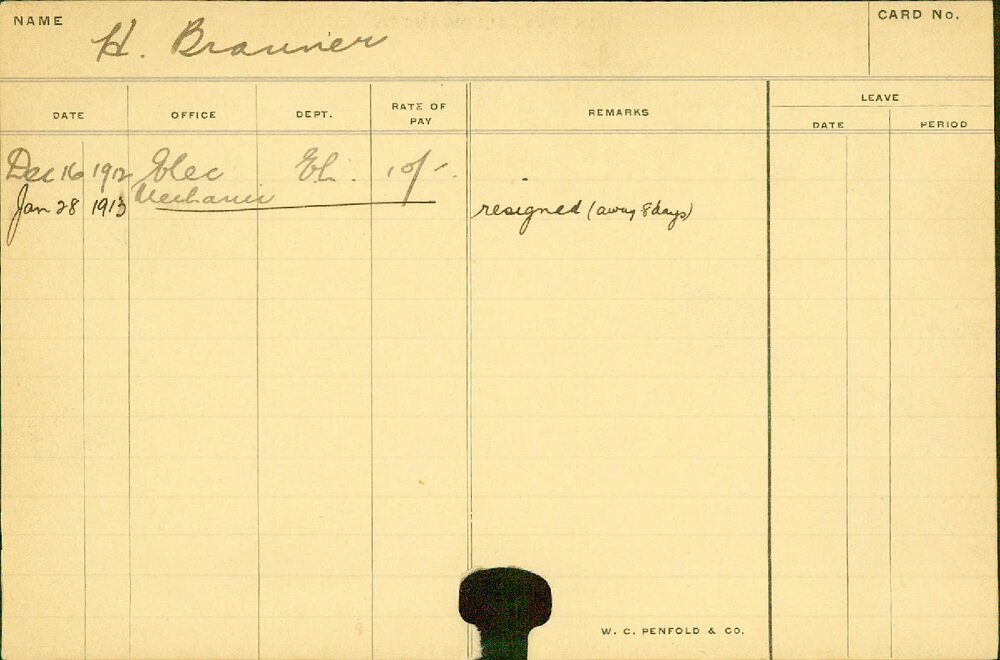 NAME H. Brauner CARD No.
DATE OFFICE DEPT. RATE OF PAY REMARKS LEAVE
DATE PERIOD
Dec 16 1912 Elec El. 10/-.
Mechanic
Jan 28 1913 resigned (away 8 days)
W. C. PENFOLD & CO.